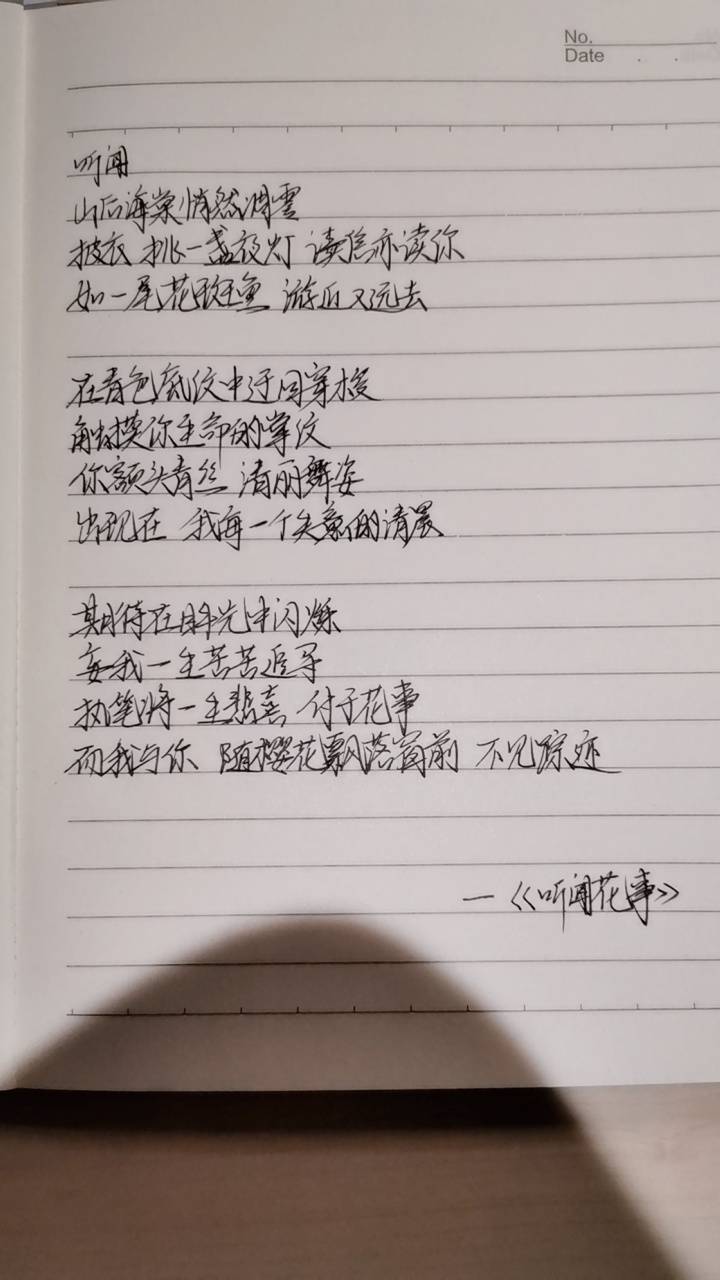 No.
Date
听闻
山后海棠悄然凋零
披衣 挑一盏夜灯 读信亦读你
如一尾花斑鱼 游近又远去
在青色底纹中迂回穿梭
触摸你生命的掌纹
你额头青丝 清丽舞姿
出现在 我每一个失意的清晨
期待在眸光中闪烁
妄我一生苦苦追寻
执笔将一生悲喜 付于花事
而我与你 随樱花飘落窗前 不见踪迹
—《听闻花事》